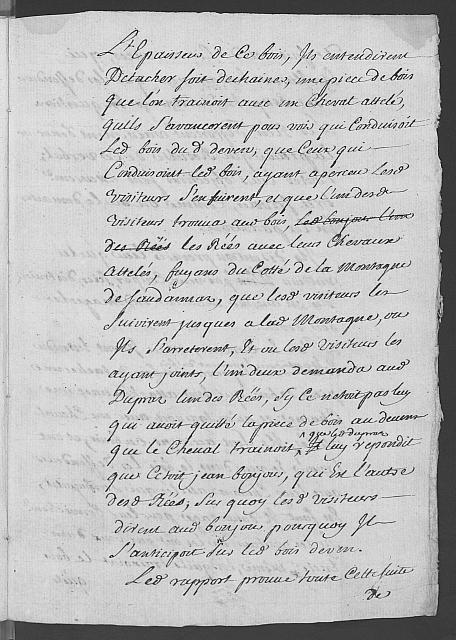 L'Epaisseur de Ce bois, Ils entendirent
Détacher soit dechaines, une piece de bois
que l'on trainoit avec un Cheval attelé,
qu'ils s'avancerent pour voir qui Conduisoit
Led bois du d deven, que Ceux qui
Conduisoint led bois, ayant aperceu Lesd
visiteurs s'enfuirent, et que l'un desd
visiteurs trouva aud bois, Led bonjour l'un
des Réés les Réés avec leurs Chevaux
attelés, fuyans du Cotté de la Montagne
de faudamnar, que lesd visiteurs les
suivirent jusques a lad Montagne, ou
Ils s'arreterent, Et ou lesd visiteurs les
ayant joints, l'un deux demanda aud
Dupraz l'un des Réés, sy Ce n'etoit pas luy
qui avoit quitté la piece de bois au devens
que led dupraz
que le Cheval trainoit luy repondit
que C'etoit jean bonjour, qui Est l'autre
desd Réés, sus quoy lesd visiteurs
dirent aud bonjour pourquoy Il
s'anticipoit sus led bois deven.
Led rapport prouve toute Cette suite
de